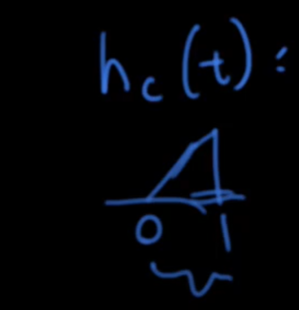 h_c(t):
0 1